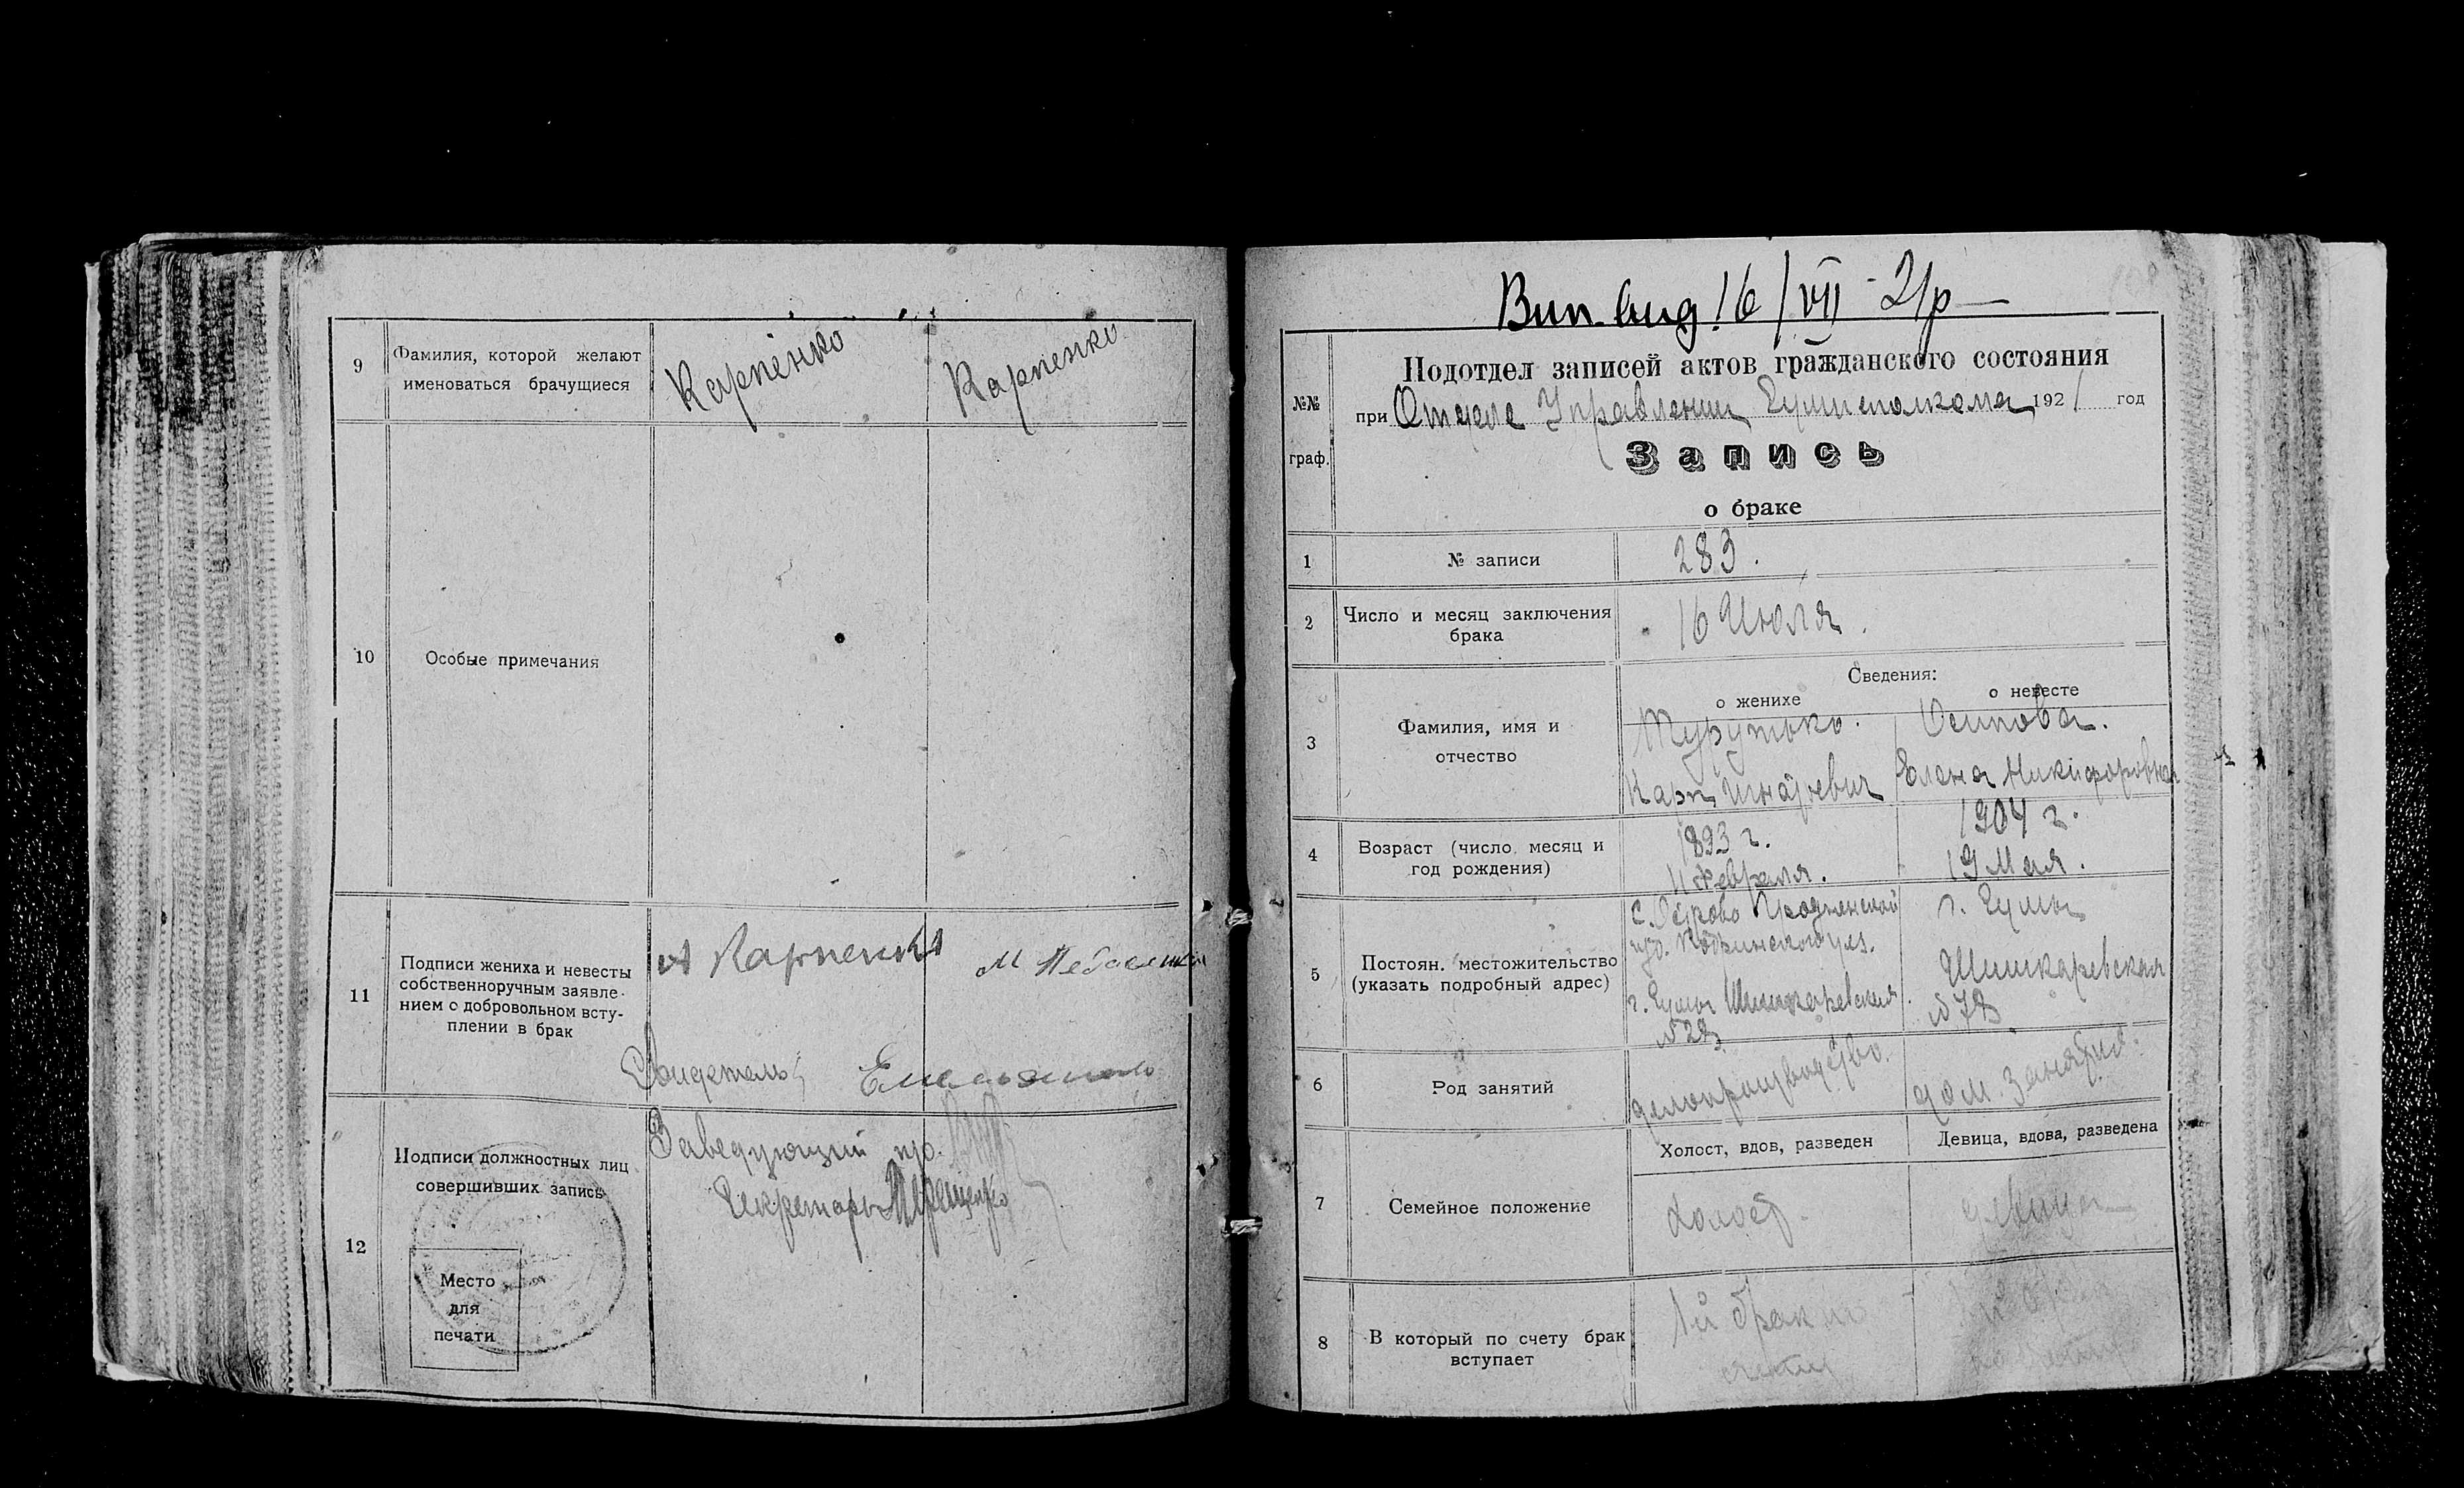 9
Фамилия, которой желают
именоваться брачущиеся
Карпенко
Карпенко
10
Особые примечания
11
Подписи жениха и невесты
собственноручным заявле-
нием о добровольном всту-
плении в брак
А Карпенко
М
Свидетель
12
Подписи должностных лиц
совершивших запись
Место
для
печати
Заведующий п/о.
Секретарь
16/VII 21р
№№
граф.
Подотдел записей актов гражданского состояния
при Отделе Управления 1921 год
Запись
о браке
1
№ записи
283.
2
Число и месяц заключения
брака
16 Июля.
3
Фамилия, имя и
отчество
Сведения:
о женихе
о невесте
Турутько.
Карп Игнатьевич
Осипова.
Елена Никифоровна
4
Возраст (число месяц и
год рождения)
1893 г.
11 Февраля.
1904 г.
19 Мая.
5
Постоян. местожительство
(указать подробный адрес)
с.
г. Сумы Шишкаревская
г. Сумы
Шишкаревская
6
Род занятий
делопроизводство.
дом. занятия.
7
Семейное положение
Холост, вдов, разведен
Девица, вдова, разведена
холост.
девица
8
В который по счету брак
вступает
1й брак по
счету